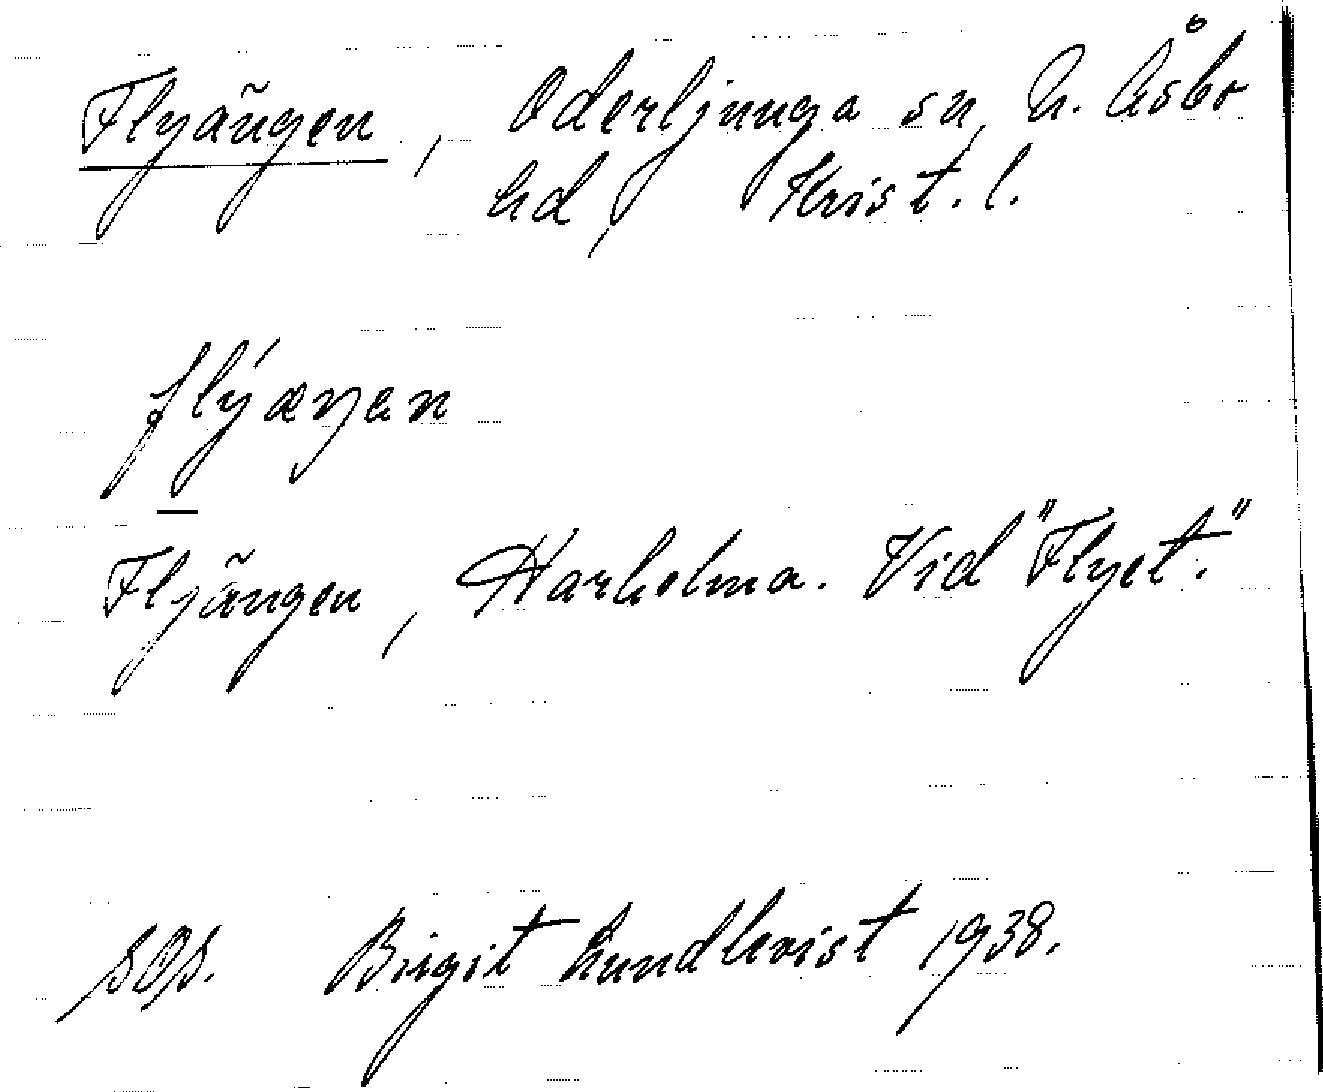 Flyängen, Oderljunga sn, N. Åsbo
hd, Krist. l.
flýæŋen
Flyängen, Harholma. Vid "Flyet."
SOS. Birgit Lundkvist 1938.